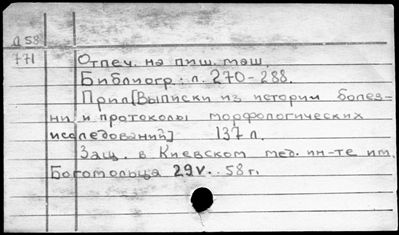 Д 58
771
Отпеч. на пиш. маш.
Библиогр.: л. 270-288.
Прил[Выписки из истории болез-
ни и протоколы морфологических
исследований] 137 л.
Защ. в Киевском мед. ин-те им.
Богомольца 29V. 58 г.